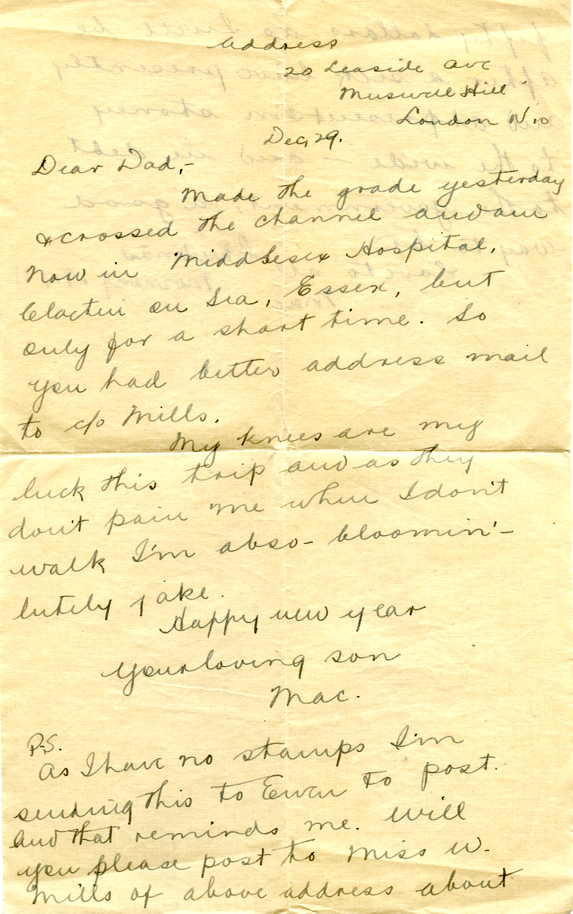 Address
20 Leaside Ave
Muswell Hill
London N.10
Dec, 29.
Dear Dad,-
Made the grade yesterday
& crossed the channel and am
now in Middlesex Hospital,
Clacton on Sea, Essex, but
only for a short time. So
you had better address mail
to c/o Mills.
My knees are my
luck this trip and as they
don't pain me when I don't
walk I'm abso- bloomin'-
lutely jake.
Happy new year
Your loving son
Mac.
P.S.
As I have no stamps I'm
sending this to Ewen to post.
And that reminds me. Will
you please post to Miss W.
Mills of above address about